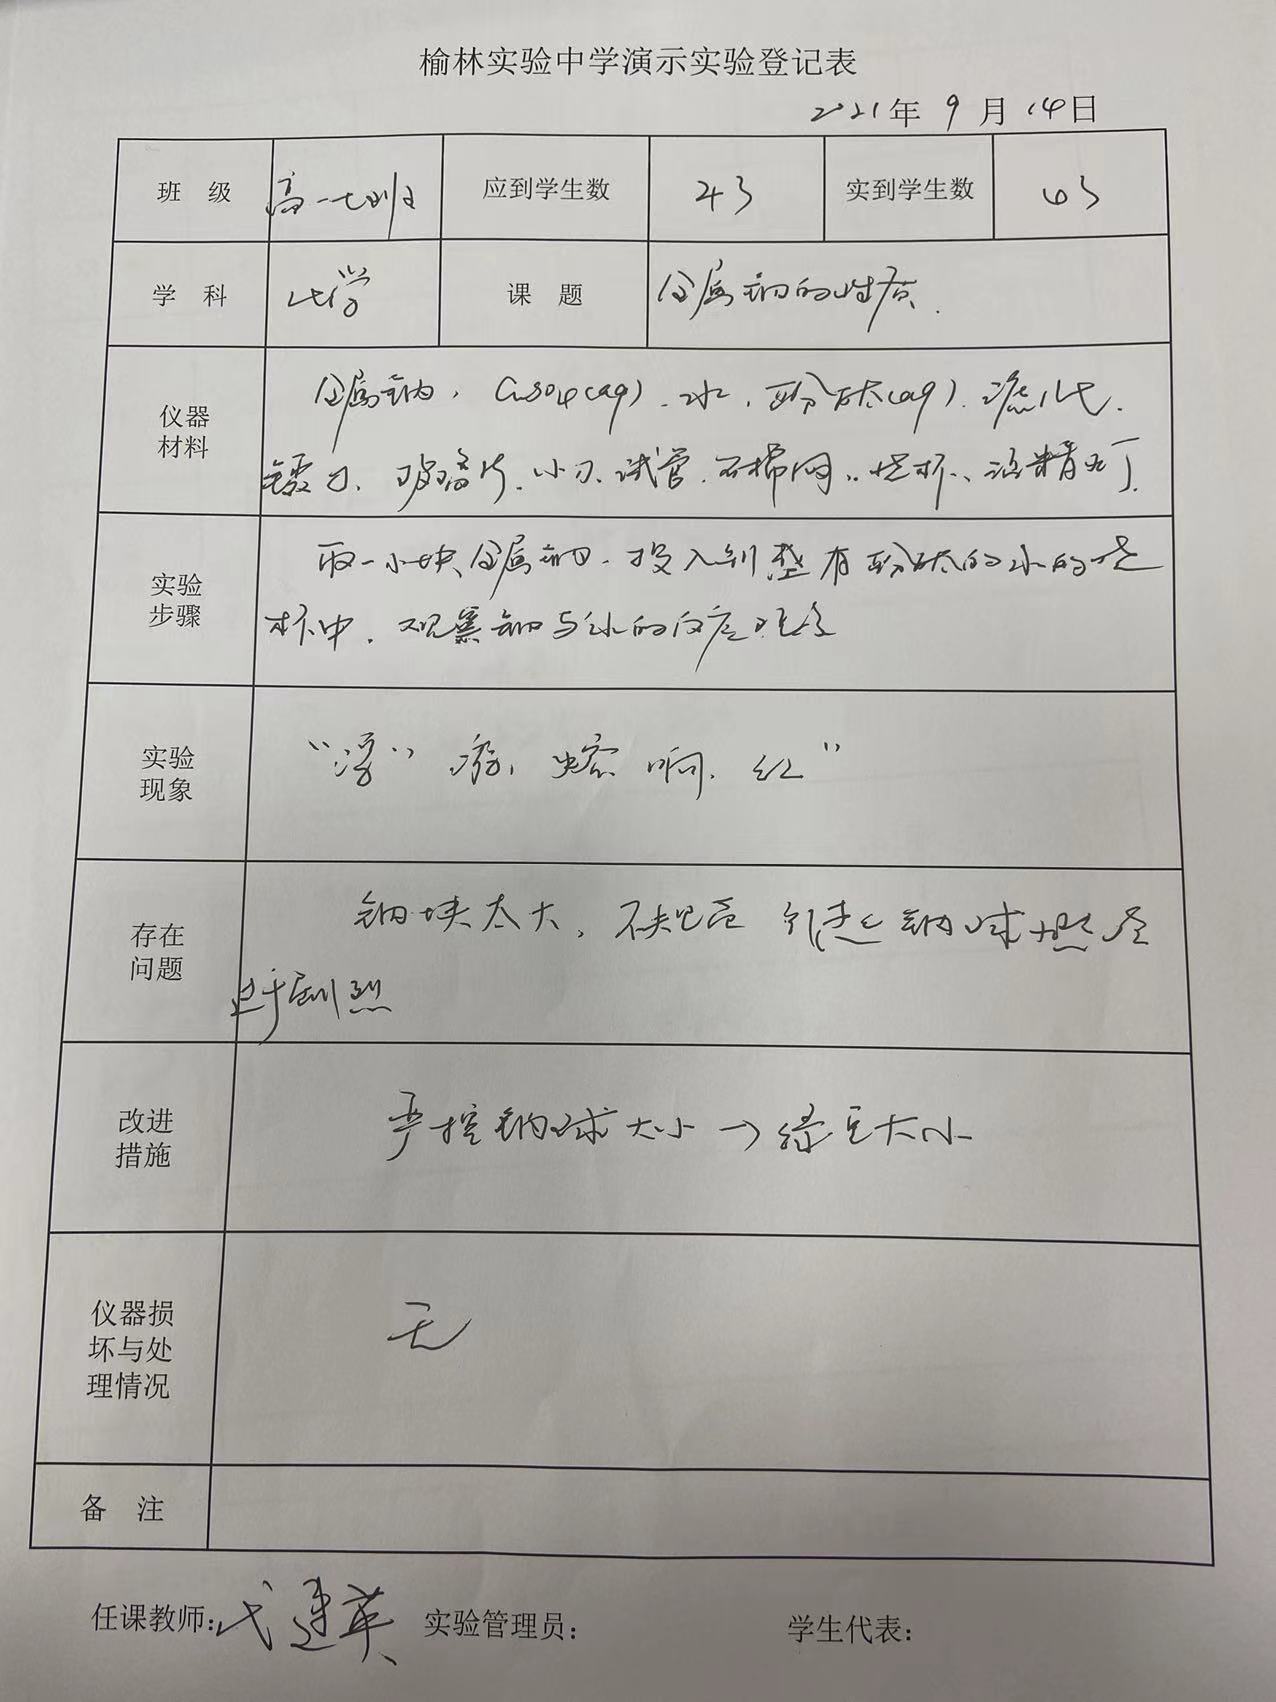 榆林实验中学演示实验登记表
2021年 9月 14日
班 级 高一七班 应到学生数 43 实到学生数 43
学 科 化学 课 题 金属钠的性质.
仪器材料 金属钠, CuSO4(aq). 水, 酚酞(aq). 滤纸.
镊刀、玻璃片、小刀、试管、石棉网、烧杯、酒精灯
实验步骤 取一小块金属钠. 投入到盛有酚酞的水的烧
杯中, 观察钠与水的反应现象
实验现象 "浮" 游, 熔 响. 红"
存在问题 钠块太大, 不规范 引起钠球燃
剧烈
改进措施 严控钠球大小→绿豆大小
仪器损坏与处理情况 无
备 注
任课教师: 建英 实验管理员: 学生代表: